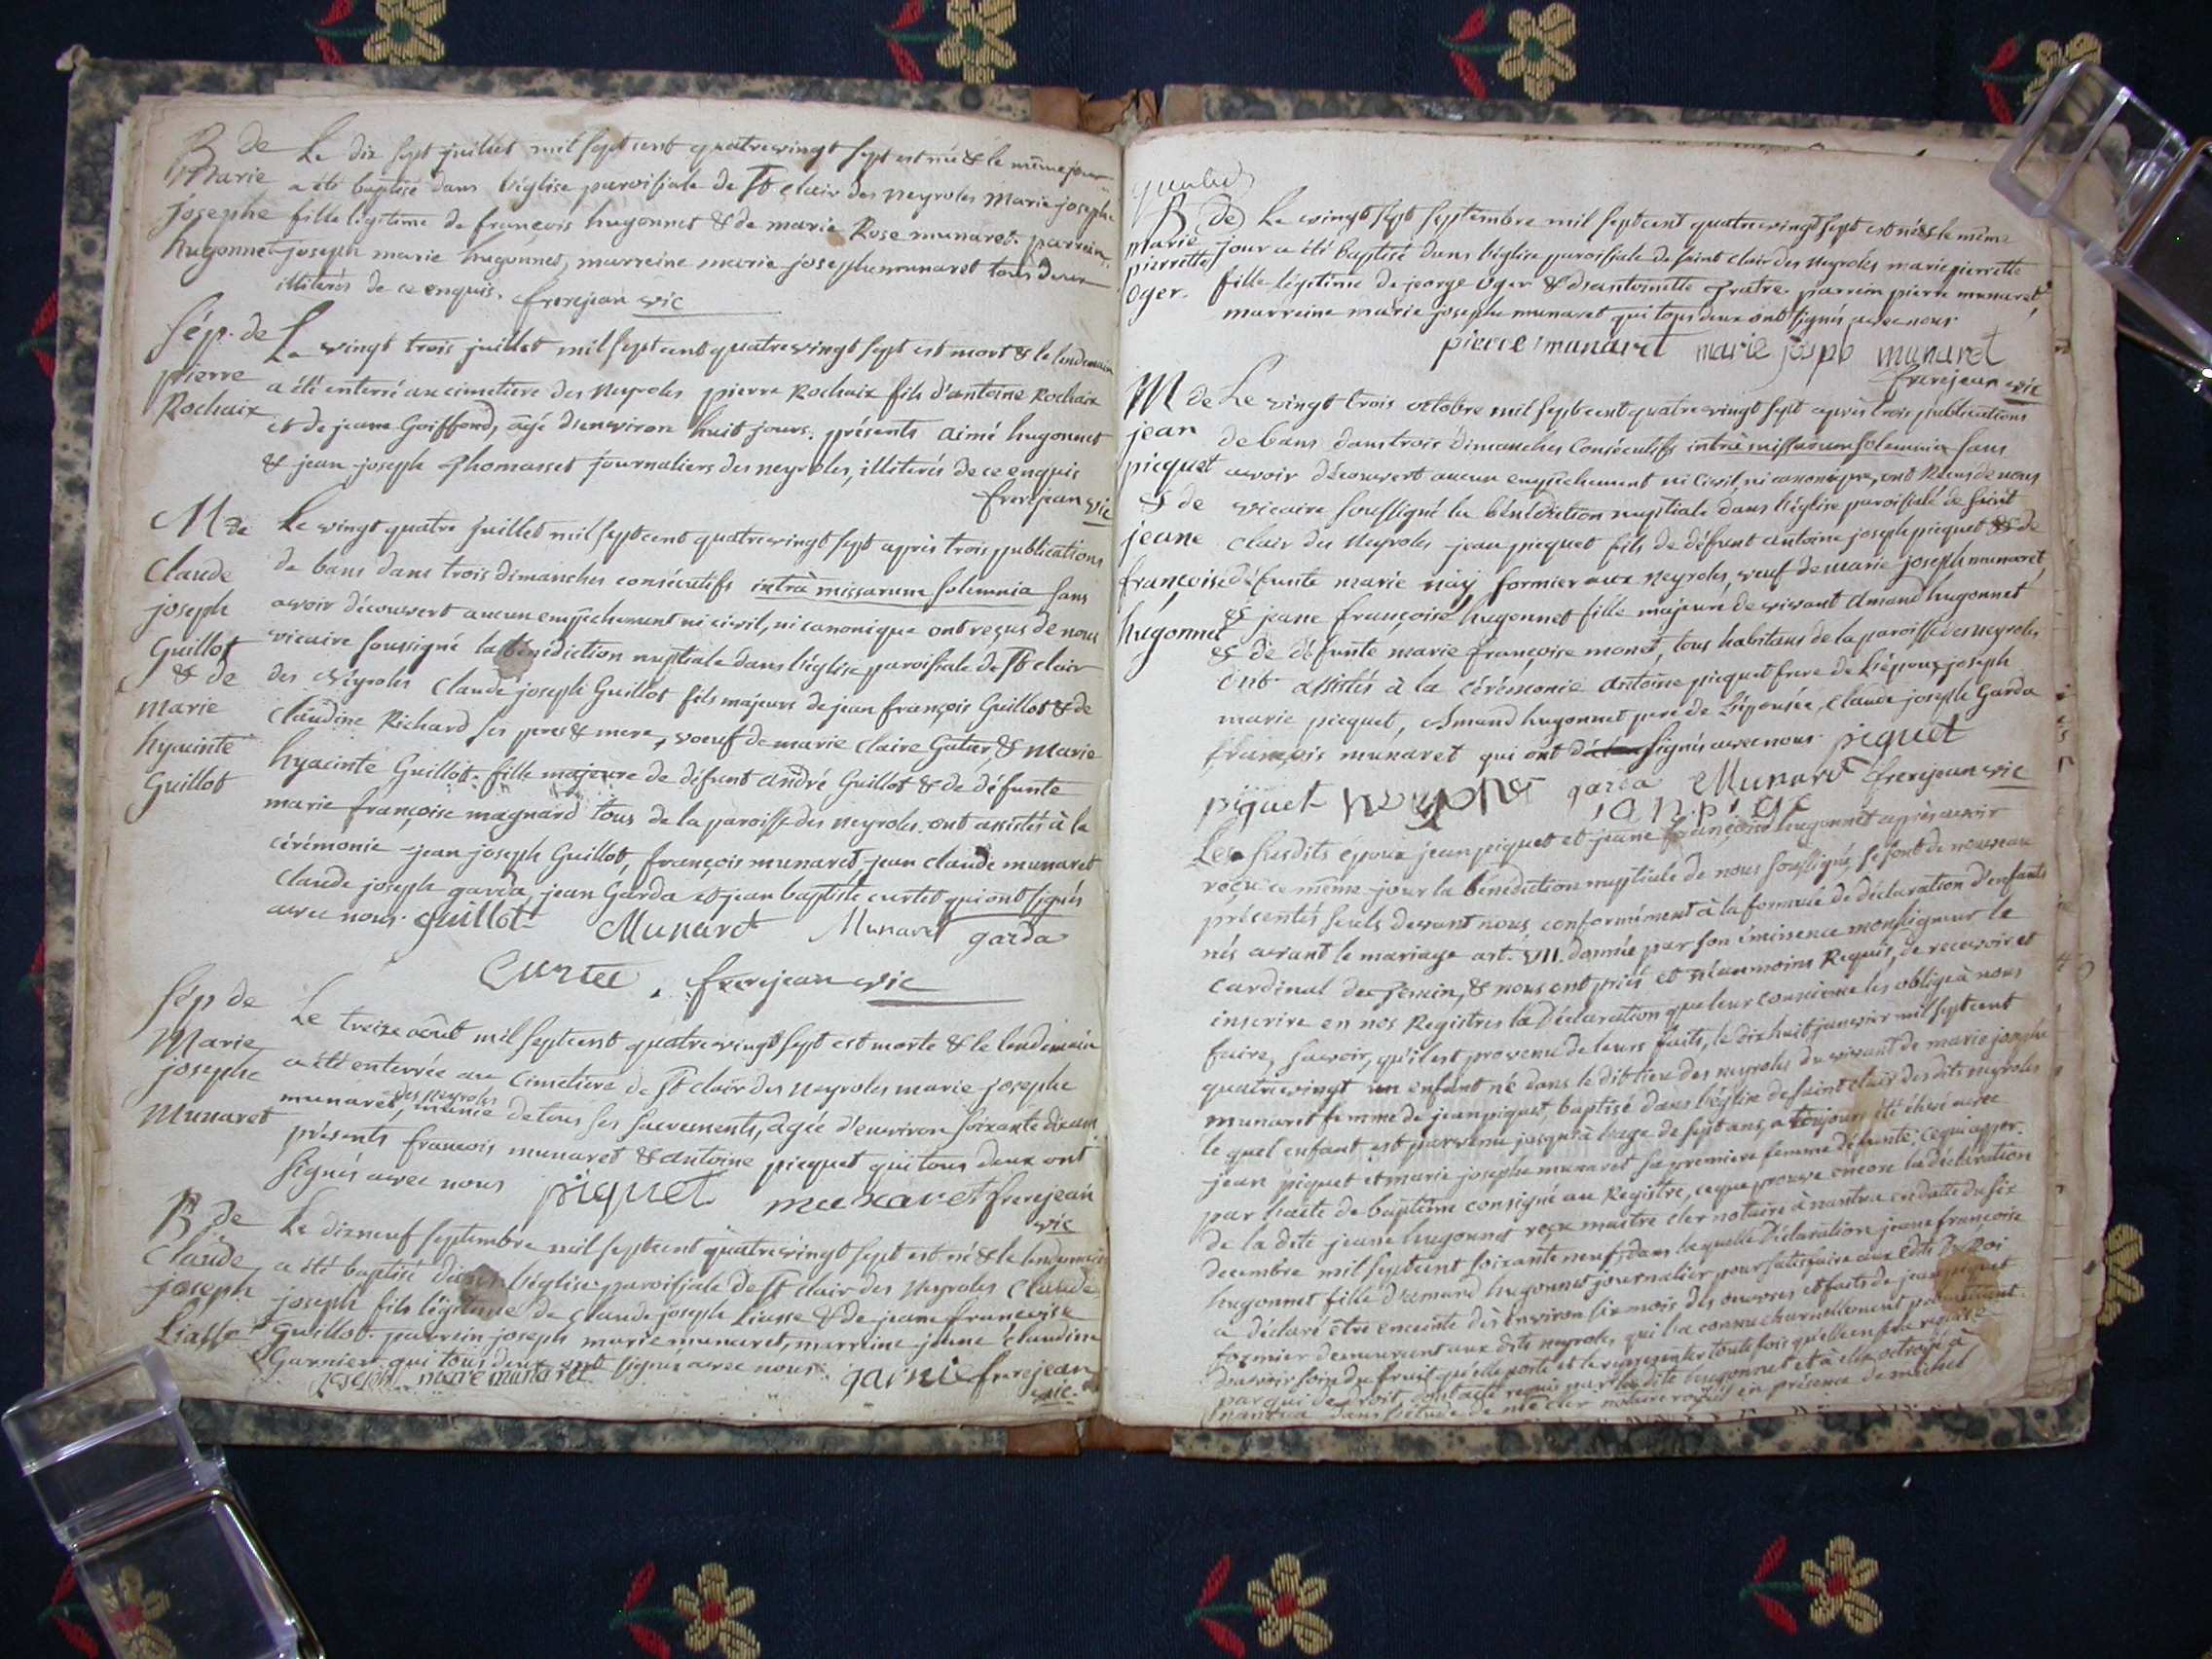 B de
Marie
Josephe
hugonnet
Le dix sept juillet mil sept cent quatrevingt sept est née & le même jour
a été baptisé dans l'église paroissiale de St clair des neyroles Marie josephe
fille légitime de françois hugonnet & de marie Rose munaret. parrein
joseph marie hugonnet, marreine marie josephe munaret tous deux
illiterés de ce enquis. frerejean vic
Sép. de
pierre
Rochaix
Le vingt trois juillet mil sept cent quatrevingt sept est mort & le lendemain
a été enterré au cimetiere des Neyroles pierre Rochaix fils d'antoine Rochaix
et de jeanne Goiffond, agé d'environ huit jours. présents aimé hugonnet
& jean joseph Thomasset journaliers des neyroles, illiterés de ce enquis
frerejean vic
M de
Claude
joseph
Guillot
& de
marie
hyacinte
Guillot
Le vingt quatre juillet mil sept cent quatrevingt sept après trois publications
de bans dans trois dimanches consécutifs intrà missarum solemnia sans
avoir découvert aucun empêchement ni civil, ni canonique ont reçus de nous
vicaire soussigné la bénédiction nuptiale dans l'église paroissiale de St clair
des Neyroles Claude joseph Guillot fils majeur de jean françois Guillot & de
Claudine Richard ses pere & mere, voeuf de marie claire Gutier, & Marie
hyacinte Guillot fille majeure de défunt andré Guillot & de défunte
marie françoise magnard tous de la paroisse des neyroles. ont assistés à la
cérémonie jean joseph Guillot, françois munaret, jean claude munaret
Claude joseph garda, jean Garda et jean baptiste curtet qui ont signés
avec nous. guillot Munaret Munaret garda
Curtet frerejean vic
Sép de
Marie
josephe
Munaret
Le treize août mil sept cent quatrevingt sept est morte & le lendemain
a été enterrée au Cimetiere de St clair des neyroles marie josephe
des neyroles
munaret, munie de tous ses sacrements, agée d'environ soixante dix ans.
présents francois munaret & antoine picquet qui tous deux ont
signés avec nous piquet munaret frerejean
vic
B de
Claude
joseph
Liasse
Le dixneuf septembre mil sept cent quatrevingt sept est né & le lendemain
a été baptisé dans l'église paroissiale de St clair des Neyroles Claude
joseph fils légitime de Claude joseph Liasse & de jeane françoise
Guillot. parrein joseph marie munaret, marreine jeane claudine
Garnier qui tous deux ont signés avec nous. garnie frerejean
joseph marie munaret vic
B de
marie
pierrette
Oger.
Le vingt sept septembre mil sept cent quatrevingt sept est née & le même
jour a été baptisé dans l'église paroissiale de saint clair des neyroles marie pierrette
fille légitime de jeorge Oger & d'antoinette pierre munaret,
marreine marie josephe munaret qui tous deux ont signés avec nous.
pierre munaret marie josph munaret
frerejean vic
M de
jean
picquet
& de
jeane
françoise
hugonnet
Le vingt trois octobre mil sept cent quatrevingt sept après trois publications
de bans dans trois dimanches consécutifs intrà missarum solemnia sans
avoir découvert aucun empêchement ni civil, ni canonique, ont Reçus de nous
vicaire soussigné la bénédiction nuptiale dans l'église paroissiale de saint
clair des Neyroles jean picquet fils de défunt antoine joseph picquet & de
défunte marie näy formier aux neyroles, veuf de marie joseph munaret,
& jeane françoise hugonnet fille majeure de vivant Amand hugonnet
& de défunte marie françoise monet, tous habitans de la paroisse des neyroles
ont assistés à la cérémonie antoine picquet frere de l'époux, joseph
marie picquet, Amand hugonnet pere de l'épousée, Claude joseph Garda
françois munaret qui ont signés avec nous. piquet
piquet garda Munaret frerejean vic
Les susdits époux jean piquet et jeane françoise hugonnet après avoir
reçu ce même jour la bénédiction nuptiale de nous soussigné, se sont de nouveau
présentés seuls devant nous conformément à la formule de déclaration d'enfants
nés avant le mariage art. VII. donnée par son éminence monseigneur le
cardinal & nous ont priés et néanmoins Requis, de recevoir et
inscrire en nos Registres la Déclaration que leur conscience les oblige à nous
faire, savoir, qu'il est provenu de leurs faits, le dix huit janvier mil sept cent
quatrevingt un enfant né dans le dit lieu des neyroles du vivant de marie josephe
munaret femme de jean piquet, baptisé dans l'église de saint clair des dits neyroles
le quel enfant est parvenu jusqu'à l'age de sept ans, a toujours été élevé avec
jean piquet et marie josephe munaret sa premiere femme défunte; ce qui appert
par l'acte de baptême consigné au Registre, ce que prouve encore la déclaration
de la dite jeane hugonnet reçu maitre cler notaire à nantua en datte du six
decembre mil sept cent soixante neuf, dans laquelle Déclaration jeane françoise
hugonnet fille d'Amand hugonnet journalier pour satisfaire aux édits du Roi
a déclaré être enceinte dès environ six mois des oeuvres et faits de jean piquet
formier demeurant aux dits neyroles, qui l'a connu charnellement
d'avoir soin du fruit qu'elle porte et le representer toutefois qu'elle en sera requise
par qui de droit, dont acte requis par la dite hugonnet et à elle octroyé à
nantua dans l'étude de me cler notaire royal en présence de michel